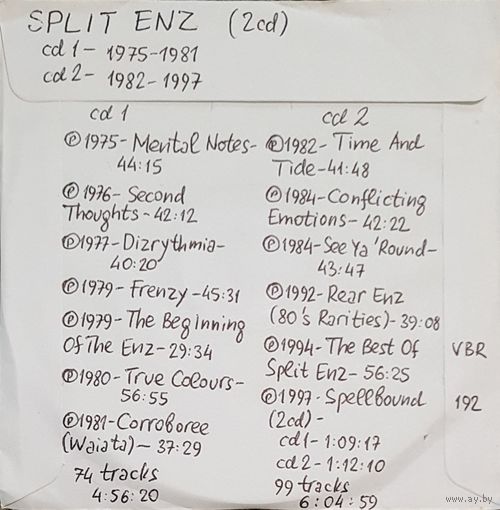 SPLIT ENZ (2cd)
cd 1 - 1975-1981
cd 2 - 1982-1997
cd 1
℗1975- Mental Notes-
44:15
℗1976- Second
Thoughts - 42:12
℗1977- Dizrythmia-
40:20
℗1979- Frenzy - 45:31
℗1979- The Beginning
Of The Enz - 29:34
℗1980- True Colours-
56:55
℗1981- Corroboree
(Waiata) - 37:29
74 tracks
4:56:20
cd 2
℗1982- Time And
Tide - 41:48
℗1984- Conflicting
Emotions - 42:22
℗1984- See Ya 'Round-
43:47
℗1992- Rear Enz
(80's Rarities) - 39:08
℗1994- The Best Of
Split Enz - 56:25
℗1997- Spellbound
(2cd) -
cd 1 - 1:09:17
cd 2 - 1:12:10
99 tracks
6:04:59
VBR
192
www.ay.by